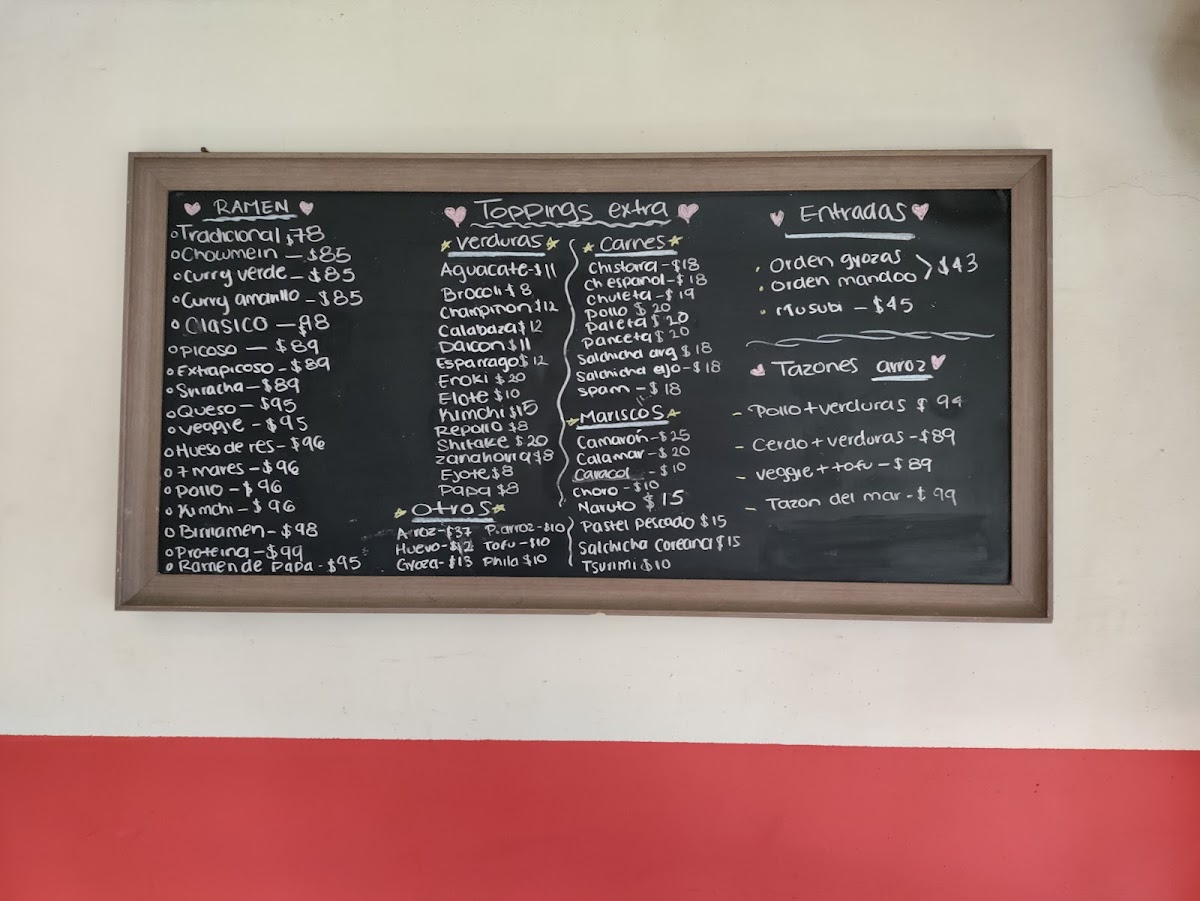 RAMEN
Tradicional $78
Chowmein - $85
Curry verde - $85
Curry amarillo - $85
Clasico -
Picoso - $89
Extrapicoso - $89
Sriracha - $89
Queso - $95
Veggie - $95
Hueso de res - $96
7 mares - $96
Pollo - $96
Kimchi - $96
Birriamen - $98
Proteina - $99
Ramen de papa - $95
Toppings extra
Verduras
Aguacate - $11
Brocoli $8
Champiñon $12
Calabaza $12
Daicon $11
Esparrago $12
Enoki $20
Elote $10
Kimchi $15
Repollo $8
Shitake $20
Zanahoria $8
Ejote $8
Papa $8
Otros
Arroz - $37 P. arroz - $10
Huevo - $12 Tofu - $10
Gyoza - $13 Phila $10
Carnes
Chistorra - $18
Ch español - $18
Chuleta - $19
Pollo $20
Paleta $20
Panceta $20
Salchicha arg $18
Salchicha ajo - $18
Spam - $18
Mariscos
Camarón - $25
Calamar - $20
Caracol - $10
Choro - $10
Naruto $15
Pastel pescado $15
Salchicha Coreana $15
Tsurimi $10
Entradas
Orden gyozas
Orden mandoo > $43
Musubi - $45
Tazones arroz
- Pollo + verduras $94
- Cerdo + verduras - $89
- Veggie + tofu - $89
- Tazon del mar - $99